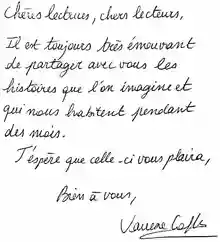 Chères lectrices, chers lecteurs,
Il est toujours très émouvant
de partager avec vous les
histoires que l'on imagine et
qui nous habitent pendant
des mois.
J'espère que celle-ci vous plaira,
Bien à vous,